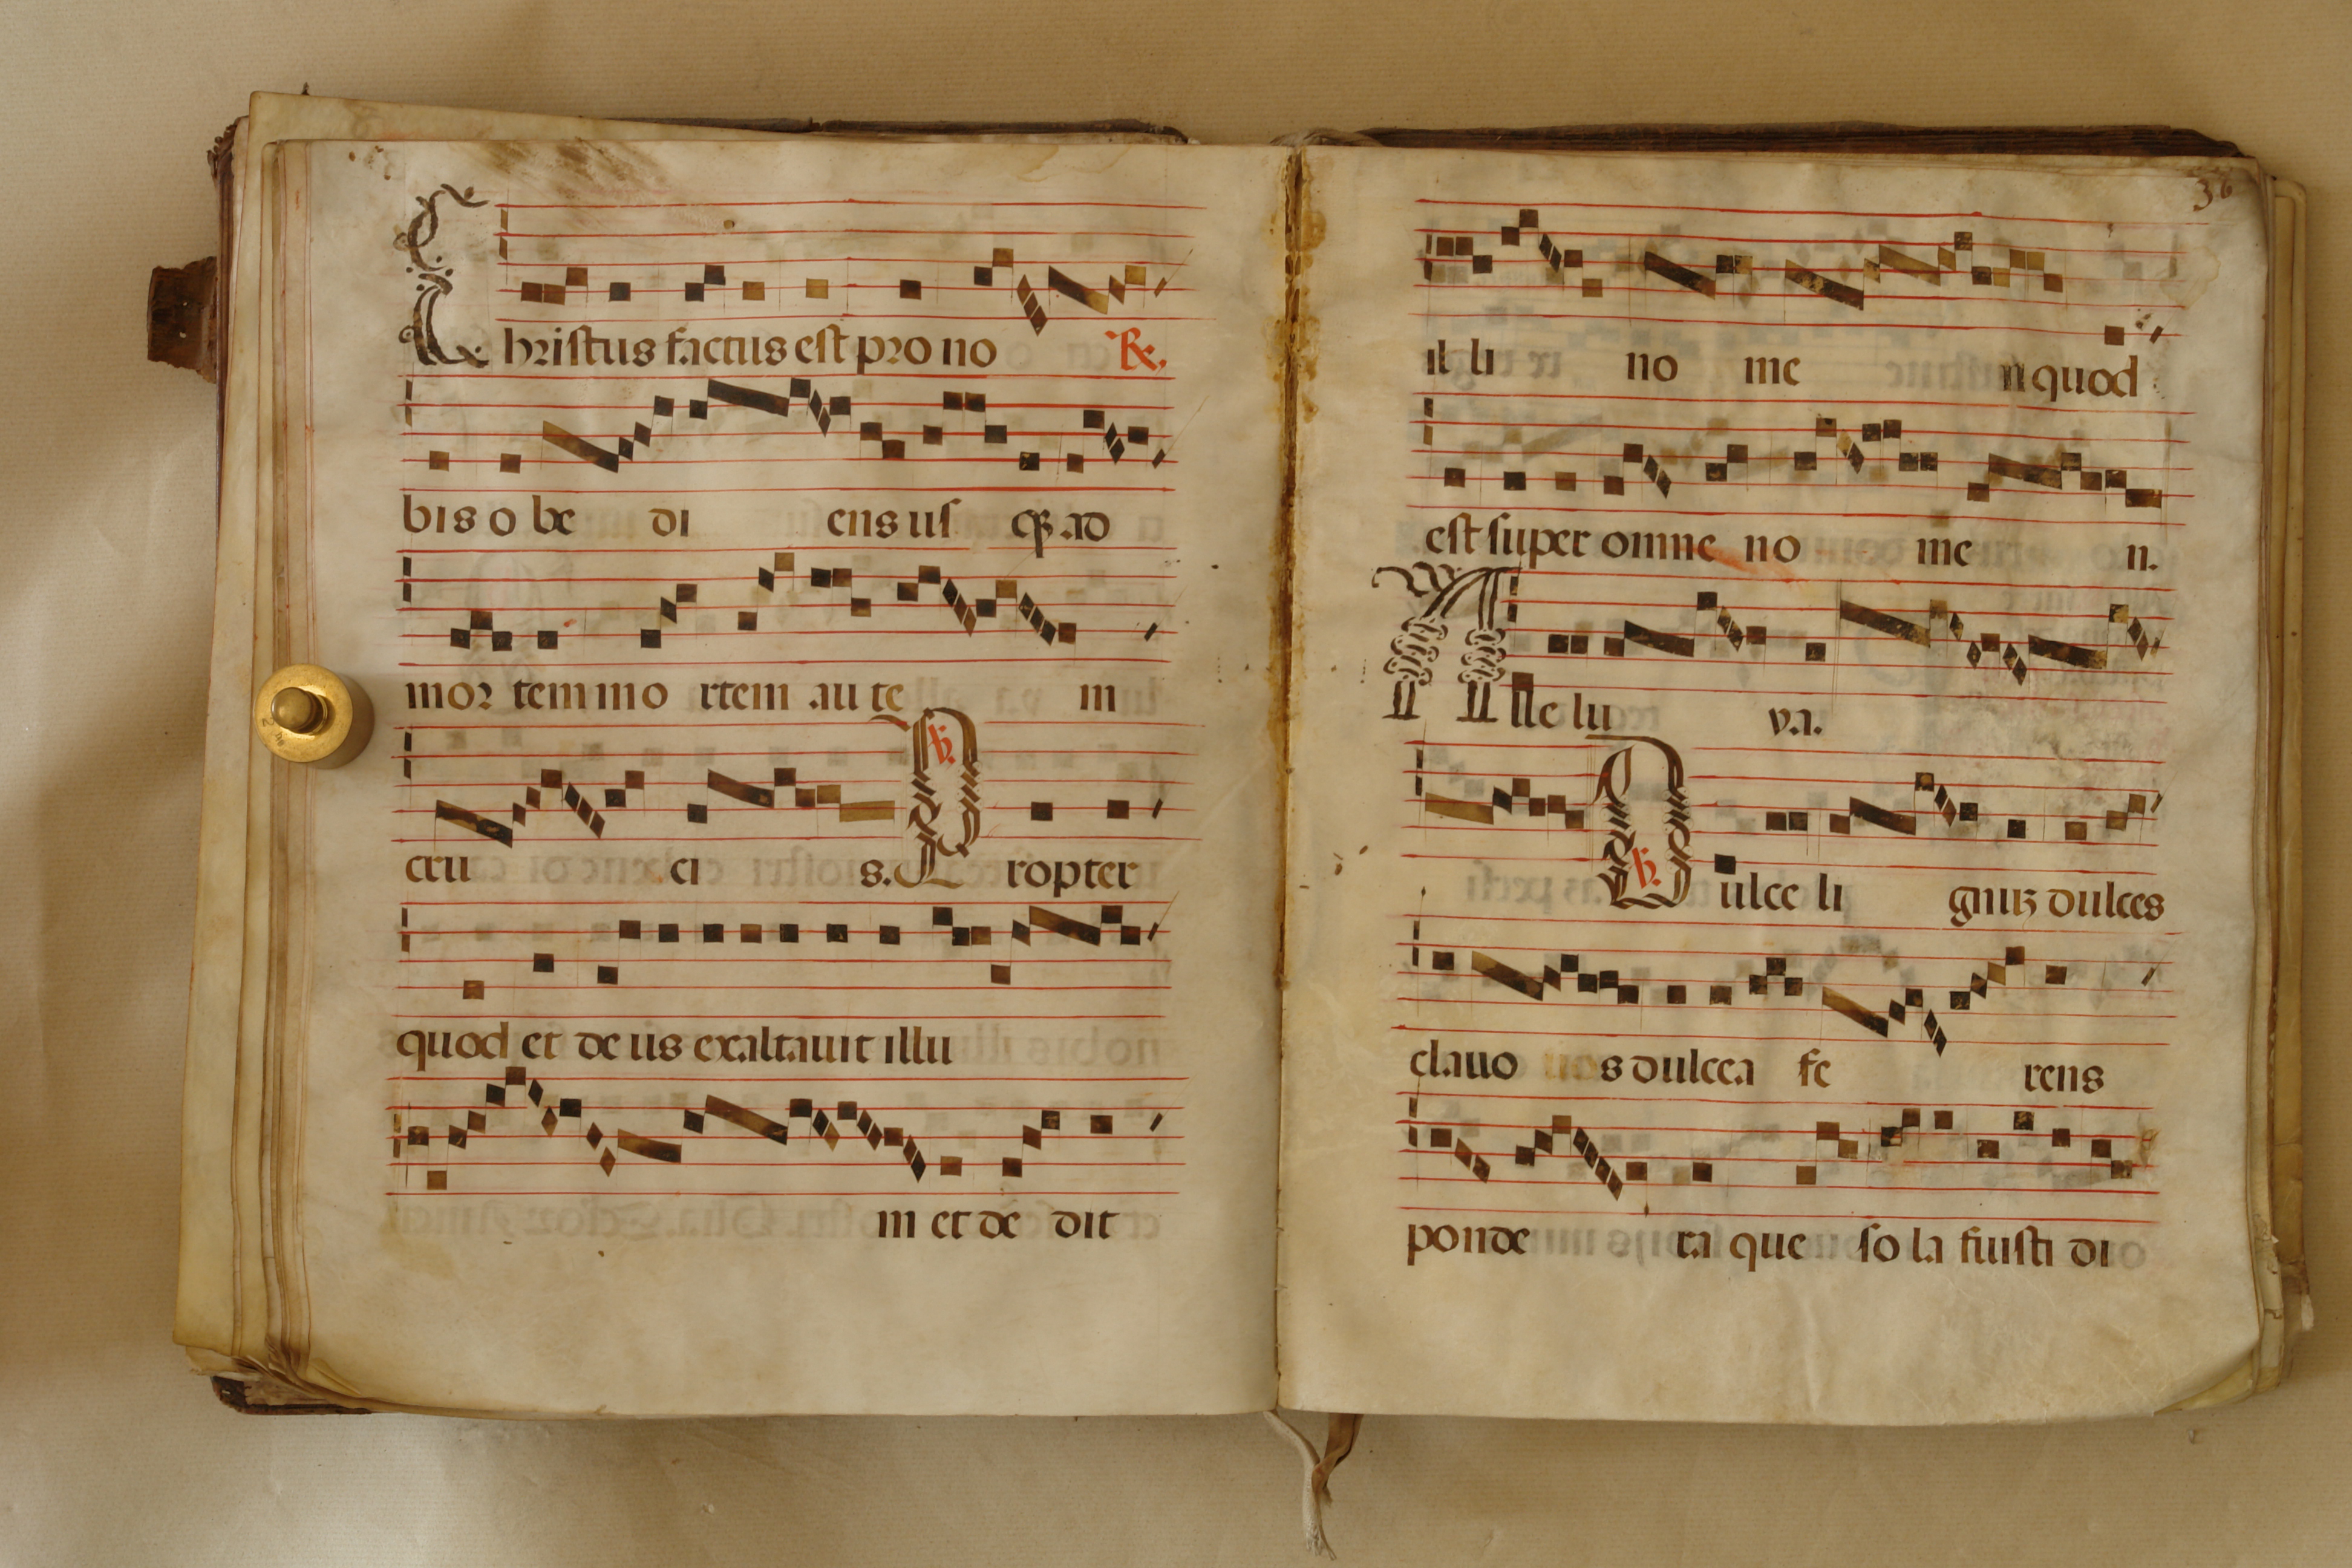 Christus factus est pro no ℟.
bis o be di ens us qꝫ ad
mor tem mo rtem au te m
cru ci s. ℣. Propter
quod et de us exaltauit illu
m et de dit
36
il li no me n quod
est super omne no me n.
Alle lu ya.
℣. Dulce li gnuꝫ dulces
clauo s dulcea fe rens
ponde ra que so la fuisti di